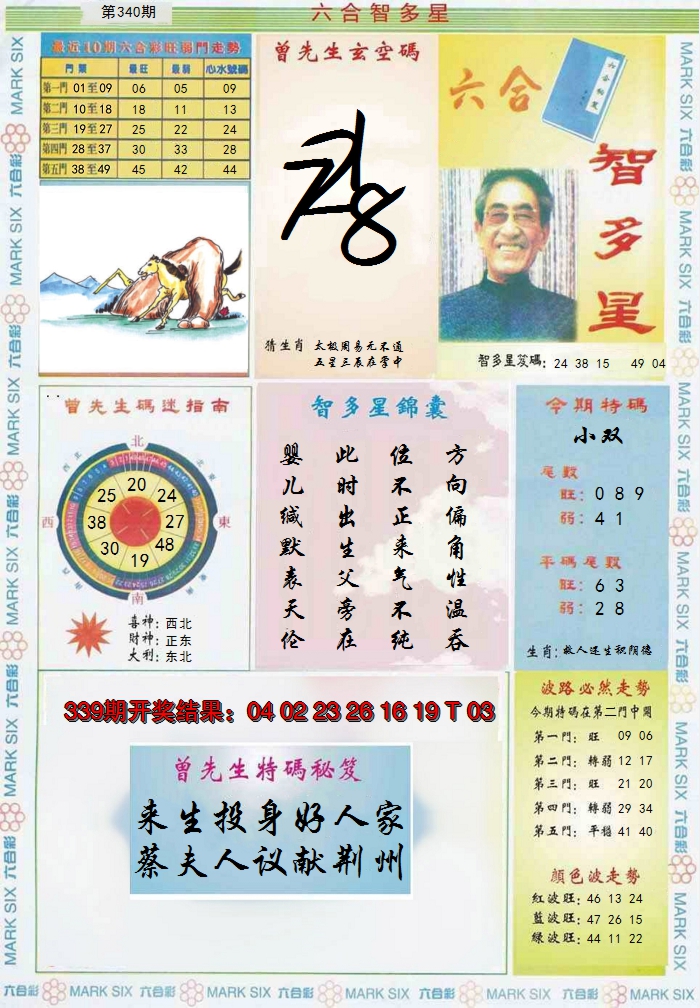 第340期
六合智多星
最近10期六合彩旺弱門走勢
門類 最旺 最弱 心水號碼
第一門 01至09 06 05 09
第二門 10至18 18 11 13
第三門 19至27 25 22 24
第四門 28至37 30 33 28
第五門 38至49 45 42 44
曾先生玄空碼
猜生肖 太极周易无不通
五星三辰在掌中
六合
六合秘笈
智多星
智多星笈碼: 24 38 15 49 04
曾先生碼迷指南
北
西北
東北
西
東
西南
東南
南
20
25 24
38 27
30 48
19
喜神: 西北
财神: 正东
大利: 东北
智多星錦囊
婴儿缄默表天伦
此时出生父旁在
位不正来气不纯
方向偏角性温吞
今期特碼
小双
尾數
旺: 0 8 9
弱: 4 1
平碼尾數
旺: 6 3
弱: 2 8
生肖: 救人还生积阴德
339期开奖结果: 04 02 23 26 16 19 T 03
曾先生特碼秘笈
来生投身好人家
蔡夫人议献荆州
波路必然走勢
今期特碼在第二門中開
第一門: 旺 09 06
第二門: 轉弱 12 17
第三門: 旺 21 20
第四門: 轉弱 29 34
第五門: 平穩 41 40
顔色波走勢
紅波旺: 46 13 24
藍波旺: 47 26 15
綠波旺: 44 11 22
MARK SIX 六合彩